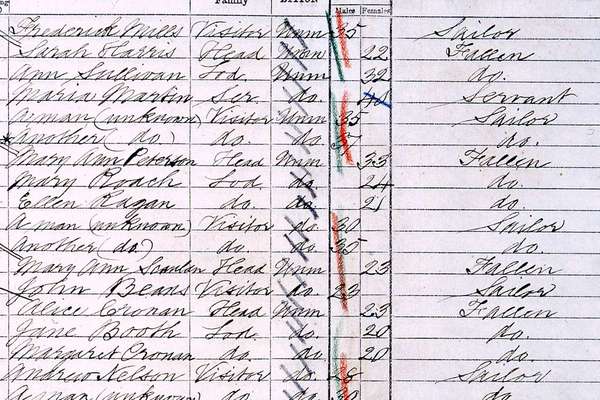 Family
Males Females
Frederick Mills Visitor Unm 35 Sailor
Sarah Harris Head Unm 22 Fallen
Ann Sullivan Lod. Unm 32 do.
Maria Martin Ser. do. Servant
A man (unknown) Visitor Unm 35 Sailor
Another (do) do. do. 37 do.
Mary Ann Peterson Head Unm 33 Fallen
Mary Roach Lod. do. 24 do.
Ellen Ragan do. do. 21 do.
A man (unknown) Visitor do. 30 Sailor
Another (do) do. do. 35 do.
Mary Ann Scanlan Head Unm 23 Fallen
John Beans Visitor do. 23 Sailor
Alice Cronan Head Unm 23 Fallen
Jane Booth Lod. do. 20 do.
Margaret Cronan do. do. 20 do.
Andrew Nelson Visitor do. 28 Sailor
A man (unknown) do. do. 30 do.